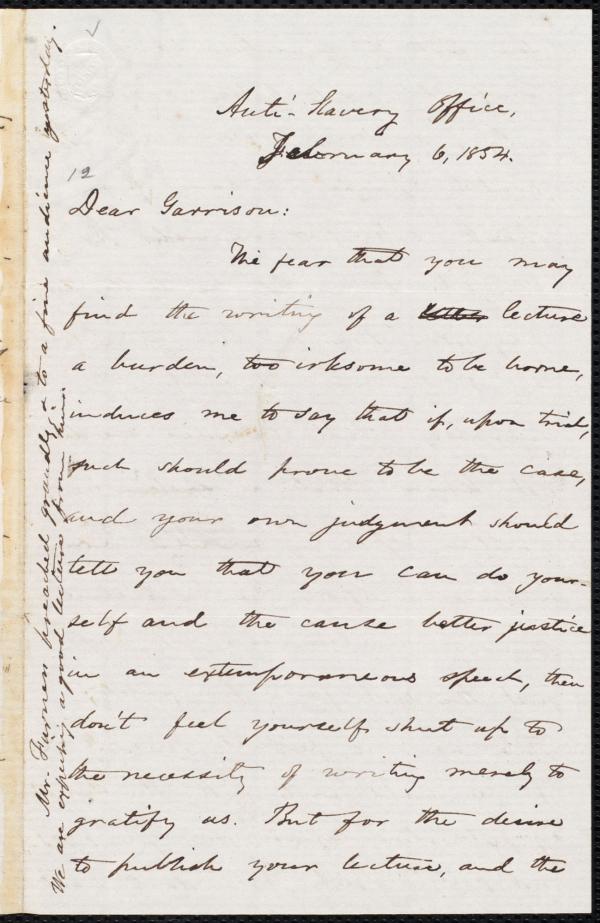 Anti-Slavery Office,
February 6, 1854.
12
Dear Garrison:
The fear that you may
find the writing of a letter lecture
a burden, too irksome to be borne,
induces me to say that if, upon trial,
such should prove to be the case,
and your own judgment should
tell you that you can do your-
self and the cause better justice
in an extemporaneous speech, then
don't feel yourself shut up to
the necessity of writing merely to
gratify us. But for the desire
to publish your lecture, and the
Mr. Furness preached grandly & to a fine audience yesterday.
We are expecting a good lecture from him.